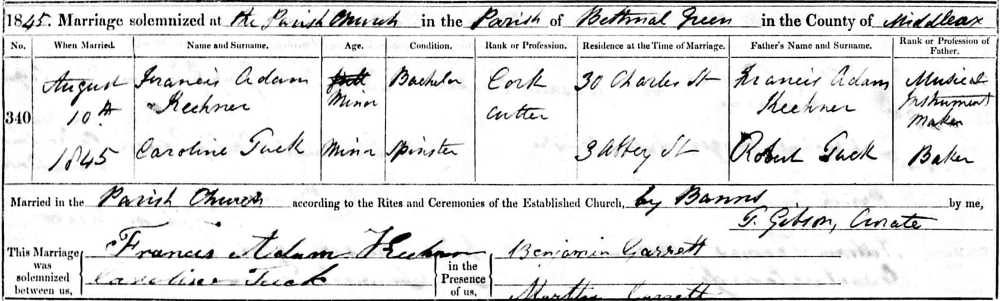 1845. Marriage solemnized at the Parish Church in the Parish of Bethnal Green in the County of Middlesex
No. When Married. Name and Surname. Age. Condition. Rank or Profession. Residence at the Time of Marriage. Father's Name and Surname. Rank or Profession of Father.
340 August 10th 1845 Francis Adam Kechner Minor Bachelor Cork Cutter 30 Charles St Francis Adam Kechner Musical Instrument Maker
Caroline Tuck Minor Spinster 3 Abbey St Robert Tuck Baker
Married in the Parish Church according to the Rites and Ceremonies of the Established Church, by Banns by me,
G. Gibson, Curate
This Marriage was solemnized between us, Francis Adam Kechner in the Presence of us, Benjamin Garrett
Caroline Tuck Martha Garrett